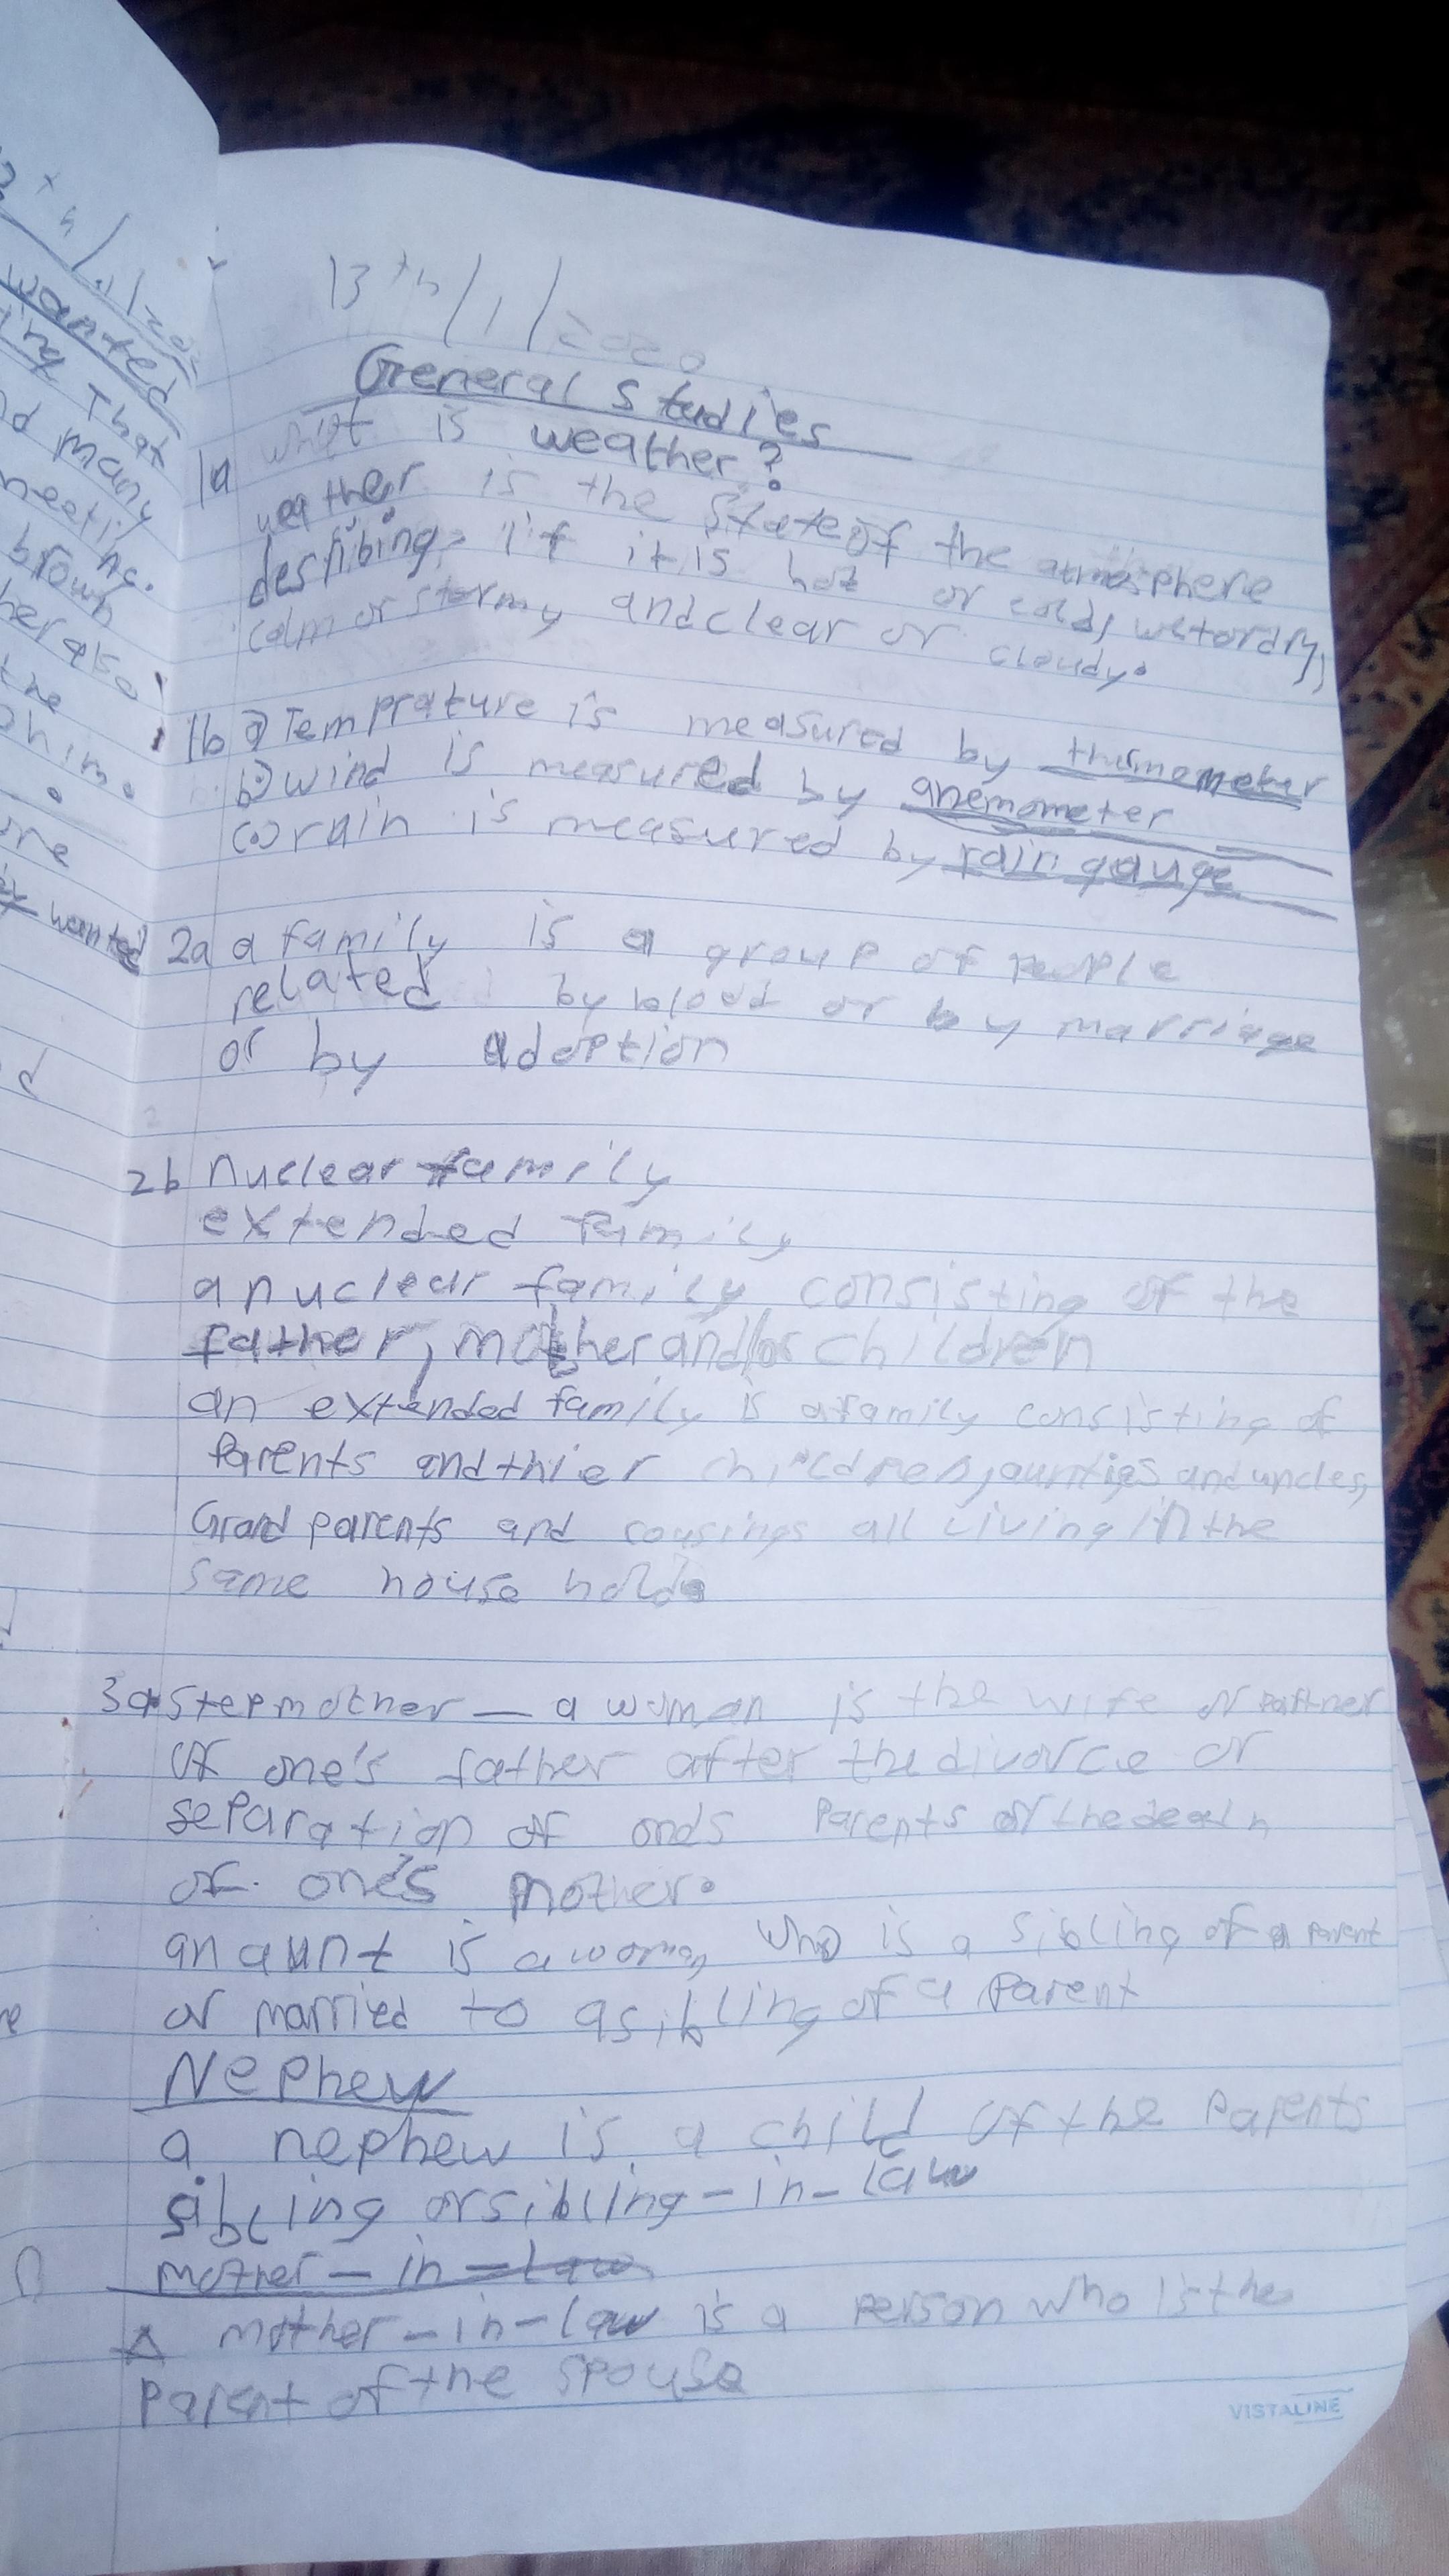 13th/1/2020
General Studies
1a what is weather?
weather is the state of the atmosphere
desribing, if it is hot or cold, wet or dry,
calm or stormy and clear or cloudy.
1b a) Temprature is measured by thermometer
b) wind is measured by anemometer
c) rain is measured by rain gauge
2a a family is a group of people
related by blood or by marriage
or by adoption
2b nuclear family
extended family
a nuclear family consisting of the
father, mother and/or children
an extended family is a family consisting of
Parents and thier children, and uncles,
Grand parents and cousings all living in the
same house hold.
3a Stepmother — a woman is the wife or Partner
of one's father after the divorce or
separation of one's Parents or the death
of one's mother.
an aunt is a woman who is a sibling of a parent
or married to a sibling of a parent
Nephew
a nephew is a child of the parents
sibling or sibling-in-law
mother-in-law
A mother-in-law is a person who is the
parent of the spouse
VISTALINE
wanted
That
many
brown
the
him.
wanted